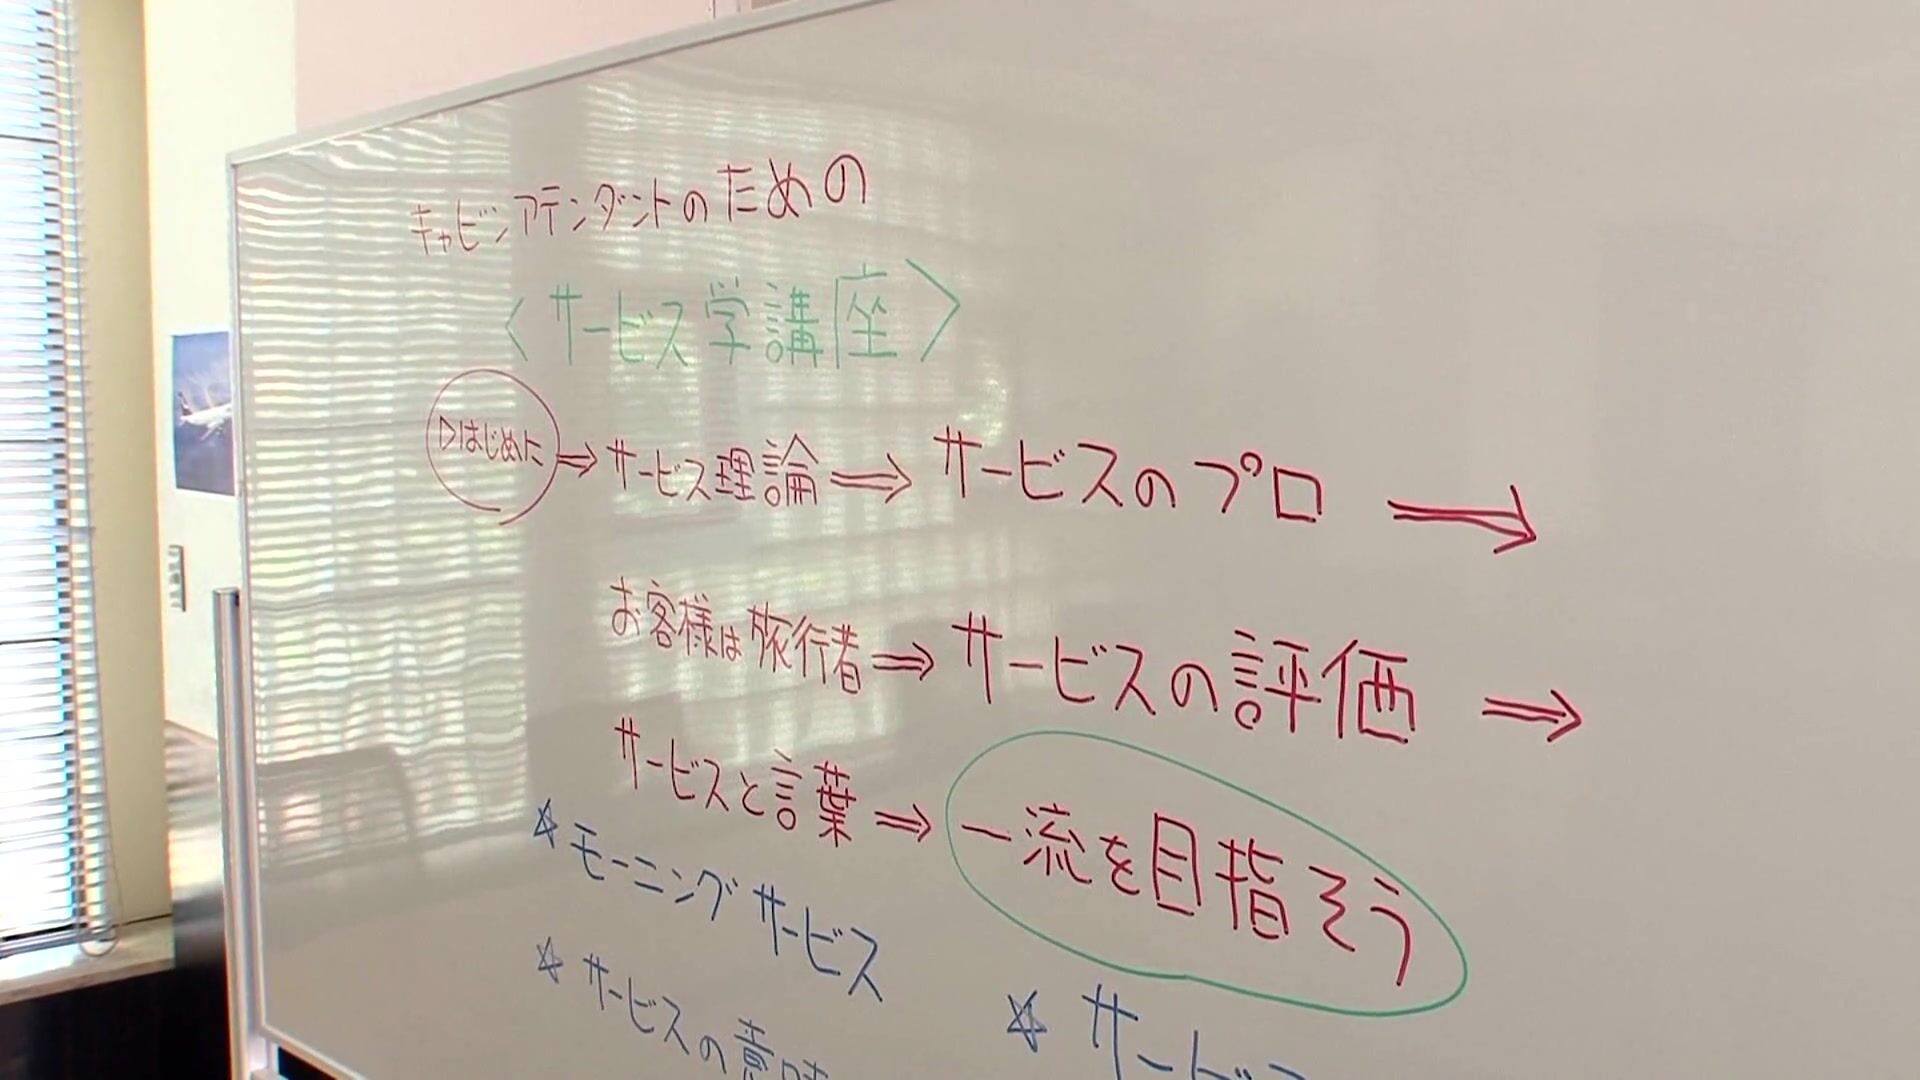 キャビンアテンダントのための
<サービス学講座>
▷はじめに ⇒ サービス理論 ⇒ サービスのプロ ⇒
お客様は旅行者 ⇒ サービスの評価 ⇒
サービスと言葉 ⇒ 一流を目指そう
☆ モーニングサービス
☆ サービスの意味
☆ サービス